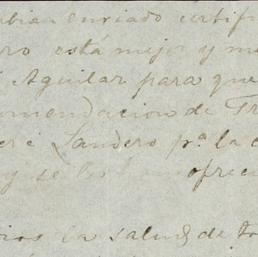 bian enviado certifi
ro está mejor y me
Aguilar para que
comendacion de Fr
Landero pª la c
y se los han ofreci
salud de to